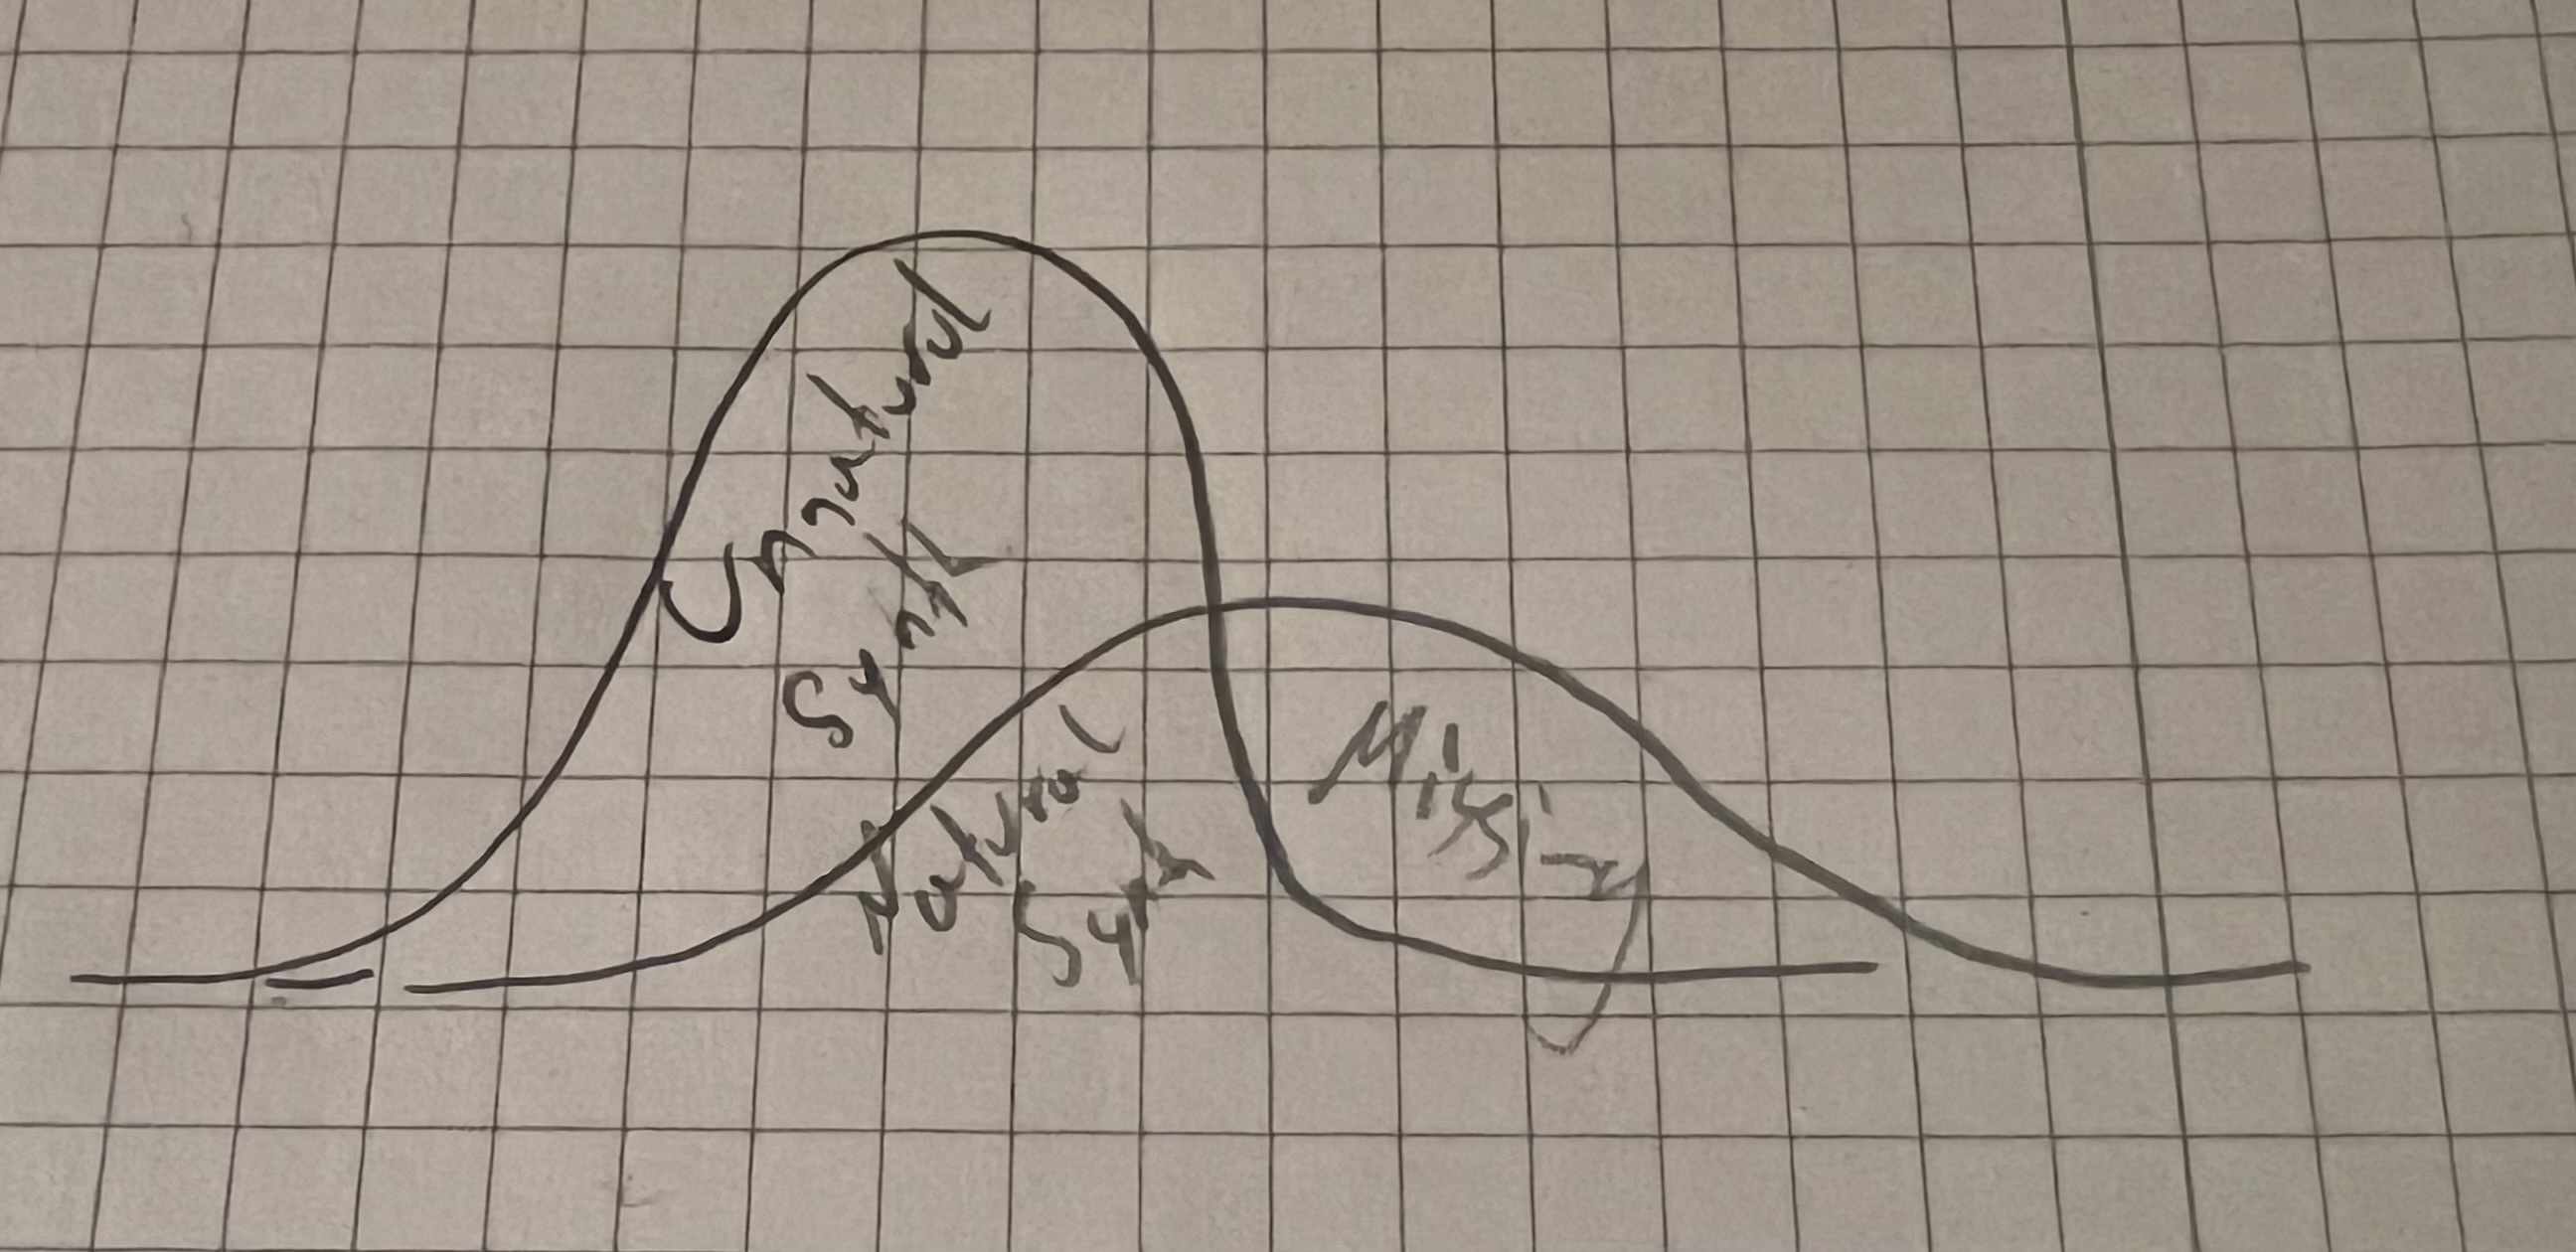 Unnatural
Synth
Natural
Synth
Missing